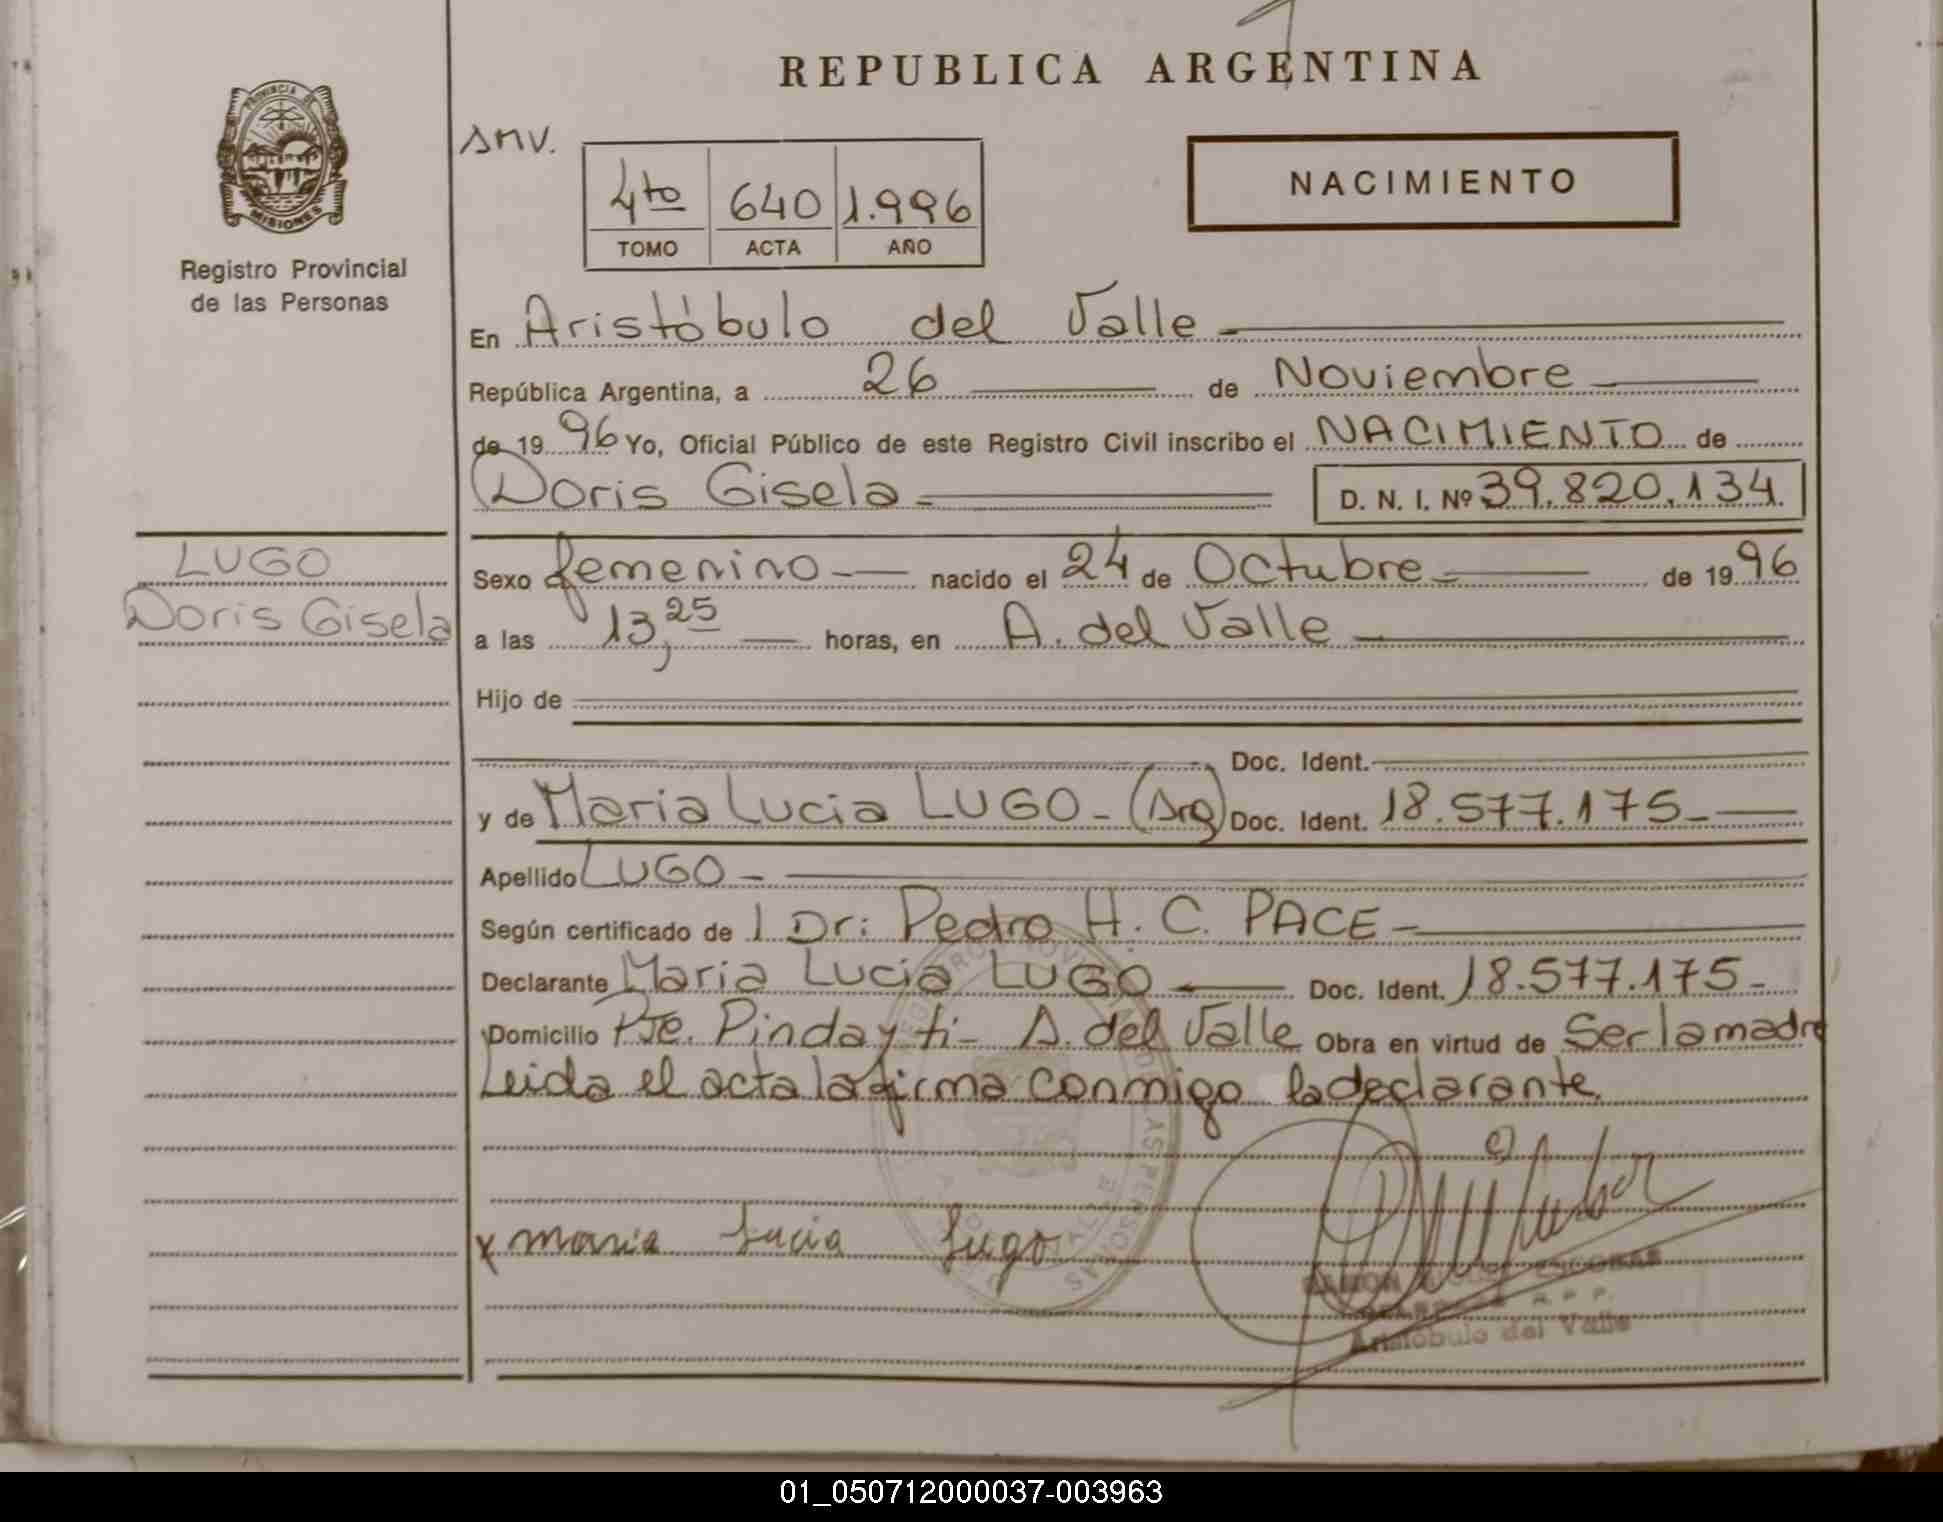 REPUBLICA ARGENTINA
PROVINCIA DE
MISIONES
Registro Provincial
de las Personas
SMV.
4to 640 1.996
TOMO ACTA AÑO
NACIMIENTO
En Aristóbulo del Valle
República Argentina, a 26 de Noviembre
de 19 96 Yo, Oficial Público de este Registro Civil inscribo el NACIMIENTO de
Doris Gisela D. N. I. Nº 39.820.134.
LUGO
Doris Gisela
Sexo femenino nacido el 24 de Octubre de 19 96
a las 13,25 horas, en A. del Valle
Hijo de
Doc. Ident.
y de Maria Lucia LUGO - (Arg) Doc. Ident. 18.577.175-
Apellido LUGO -
Según certificado de 1 Dr: Pedro H. C. PACE -
Declarante Maria Lucia LUGO Doc. Ident. 18.577.175-
Domicilio Pje. Pindayti- A. del Valle Obra en virtud de Ser la madre
Leida el acta la firma conmigo la declarante.
x maria Lucia Lugo
ESCOBAR
Aristóbulo del Valle
01_050712000037-003963